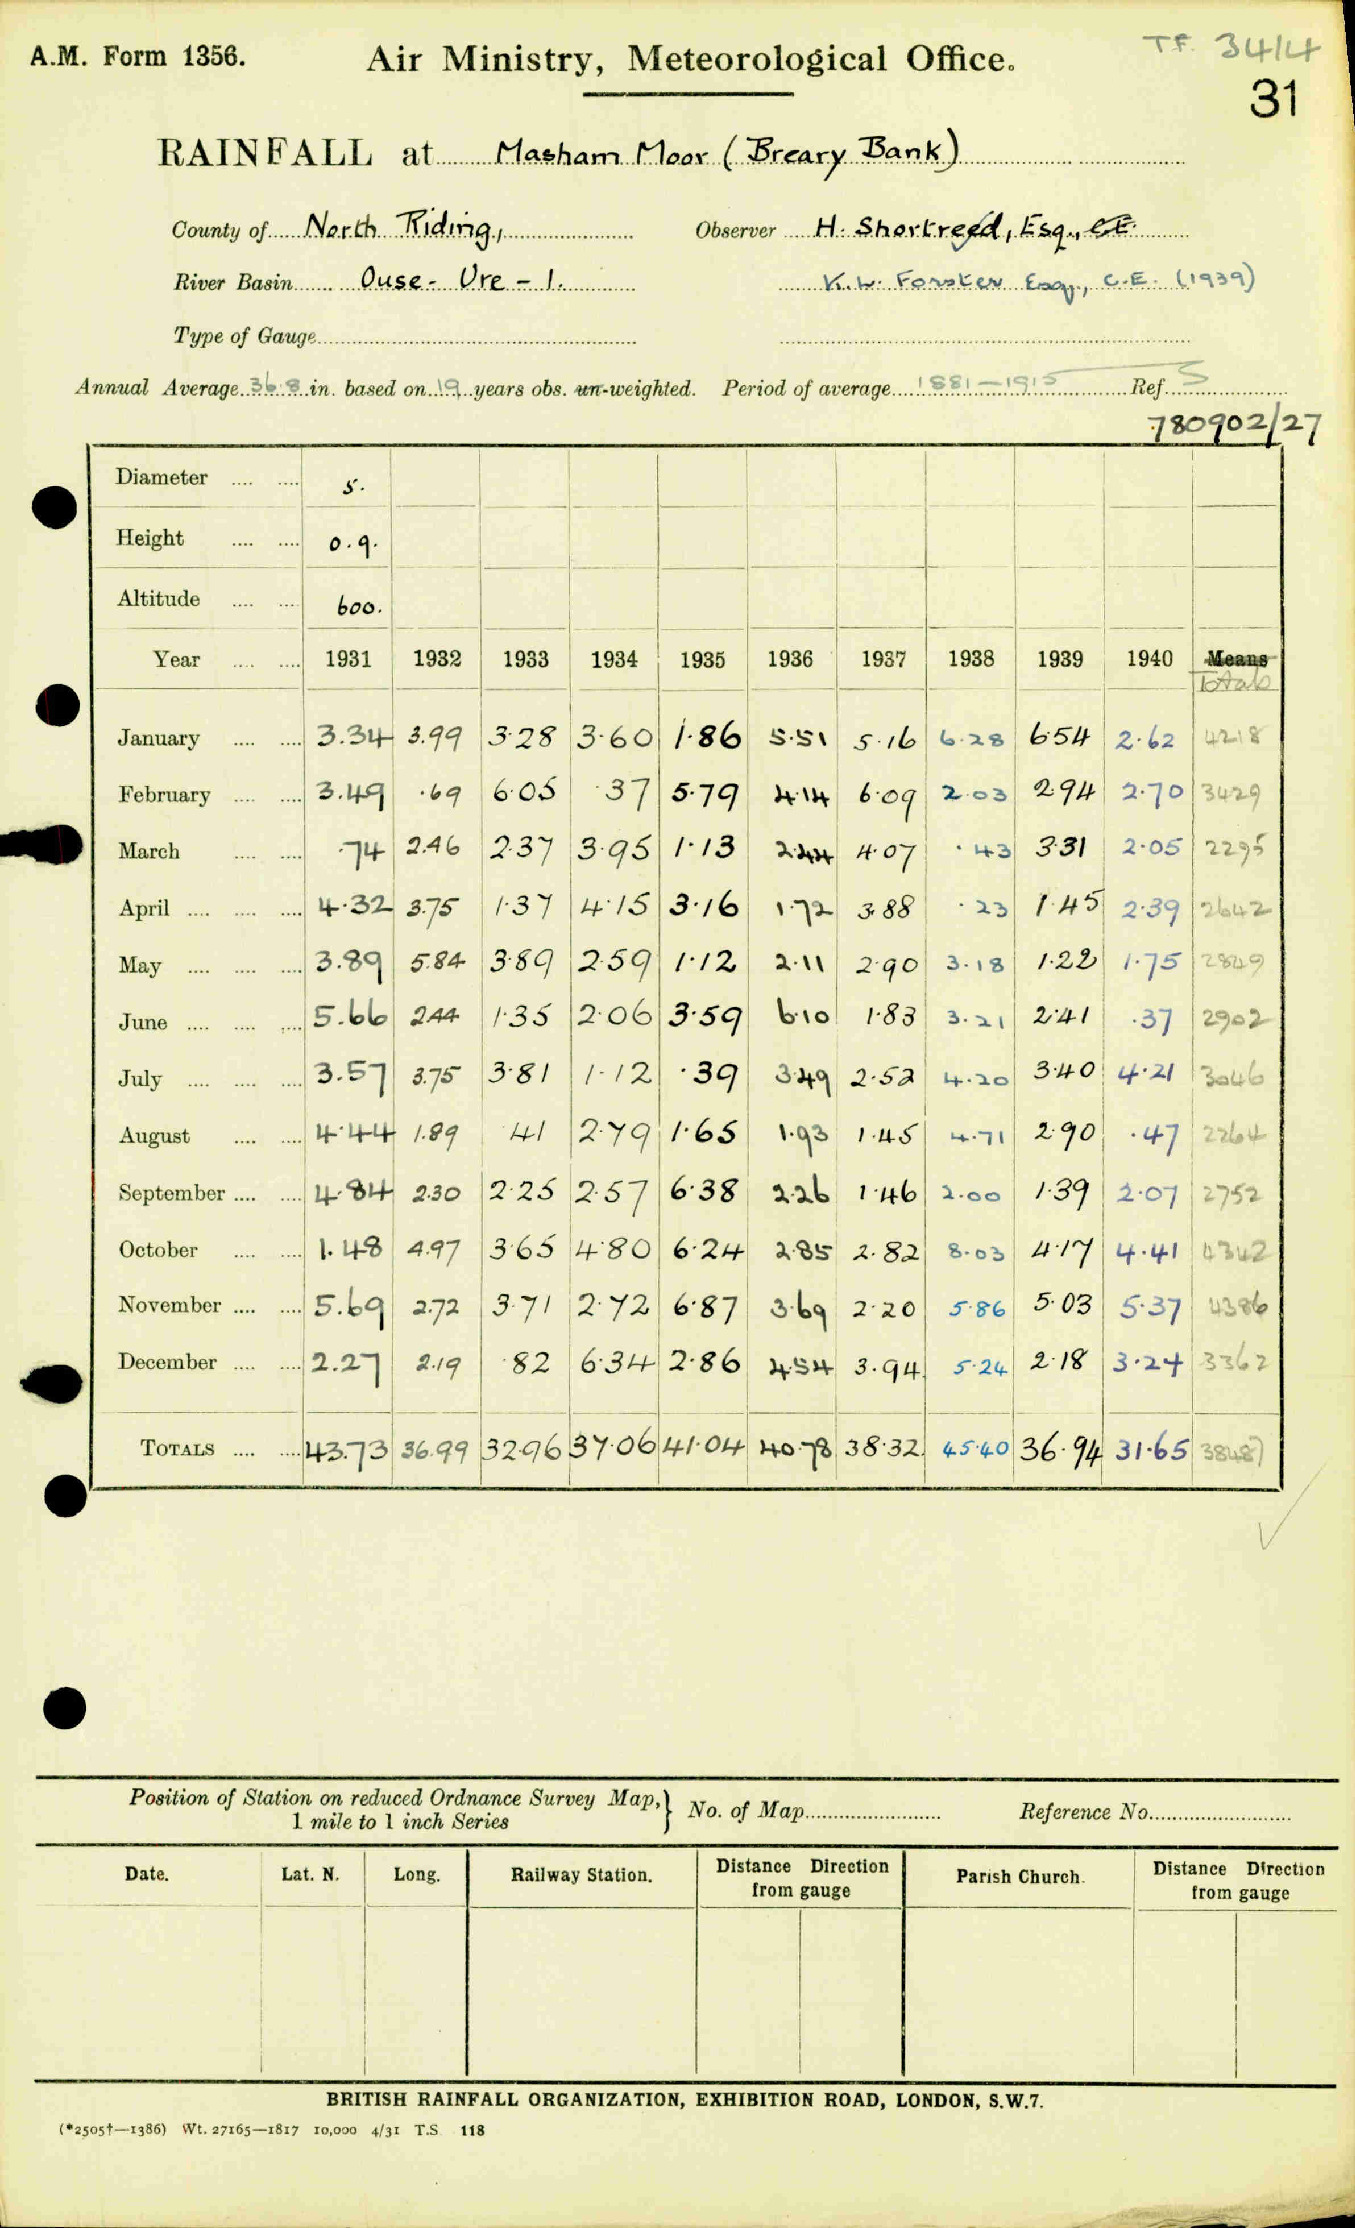 A.M. Form 1356.
Air Ministry, Meteorological Office.
T.F. 34/4
31
RAINFALL at Masham Moor (Breary Bank)
County of North Riding, Observer H. Shortreed, Esq., C.E.
River Basin Ouse - Ure - 1. K.W. Forster Esq., C.E. (1939)
Type of Gauge
Annual Average 36.8 in. based on 19 years obs. un-weighted. Period of average 1881–1915 Ref. S
780902/27
Diameter 5.
Height 0.9.
Altitude 600.
Year 1931 1932 1933 1934 1935 1936 1937 1938 1939 1940 Means
Totals
January 3.34 3.99 3.28 3.60 1.86 5.51 5.16 6.28 6.54 2.62 4218
February 3.49 .69 6.05 .37 5.79 4.14 6.09 2.03 2.94 2.70 3429
March .74 2.46 2.37 3.95 1.13 2.44 4.07 .43 3.31 2.05 2295
April 4.32 3.75 1.37 4.15 3.16 1.72 3.88 .23 1.45 2.39 2642
May 3.89 5.84 3.89 2.59 1.12 2.11 2.90 3.18 1.22 1.75 2849
June 5.66 2.44 1.35 2.06 3.59 6.10 1.83 3.21 2.41 .37 2902
July 3.57 3.75 3.81 1.12 .39 3.49 2.52 4.20 3.40 4.21 3046
August 4.44 1.89 .41 2.79 1.65 1.93 1.45 4.71 2.90 .47 2264
September 4.84 2.30 2.25 2.57 6.38 2.26 1.46 2.00 1.39 2.07 2752
October 1.48 4.97 3.65 4.80 6.24 2.85 2.82 8.03 4.17 4.41 4342
November 5.69 2.72 3.71 2.72 6.87 3.69 2.20 5.86 5.03 5.37 4386
December 2.27 2.19 .82 6.34 2.86 4.54 3.94 5.24 2.18 3.24 3362
TOTALS 43.73 36.99 32.96 37.06 41.04 40.78 38.32 45.40 36.94 31.65 38487
Position of Station on reduced Ordnance Survey Map, } No. of Map Reference No.
1 mile to 1 inch Series
Date. Lat. N. Long. Railway Station. Distance Direction from gauge Parish Church. Distance Direction from gauge
BRITISH RAINFALL ORGANIZATION, EXHIBITION ROAD, LONDON, S.W.7.
(*2505†—1386) Wt. 27165—1817 10,000 4/31 T.S. 118